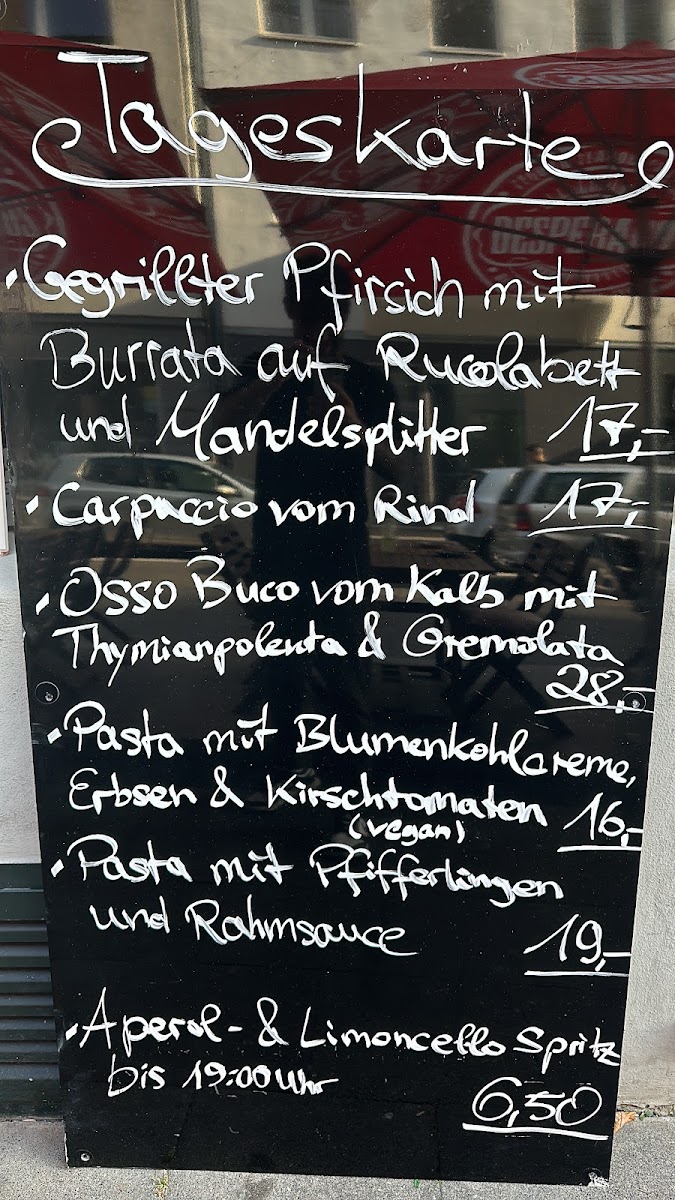 Tageskarte
· Gegrillter Pfirsich mit
Burrata auf Rucolabett
und Mandelsplitter 17,-
· Carpaccio vom Rind 17,-
· Osso Buco vom Kalb mit
Thymianpolenta & Gremolata
28,-
· Pasta mit Blumenkohlcreme,
Erbsen & Kirschtomaten 16,-
(vegan)
· Pasta mit Pfifferlingen
und Rahmsauce 19,-
· Aperol- & Limoncello Spritz
bis 19:00 Uhr 6,50